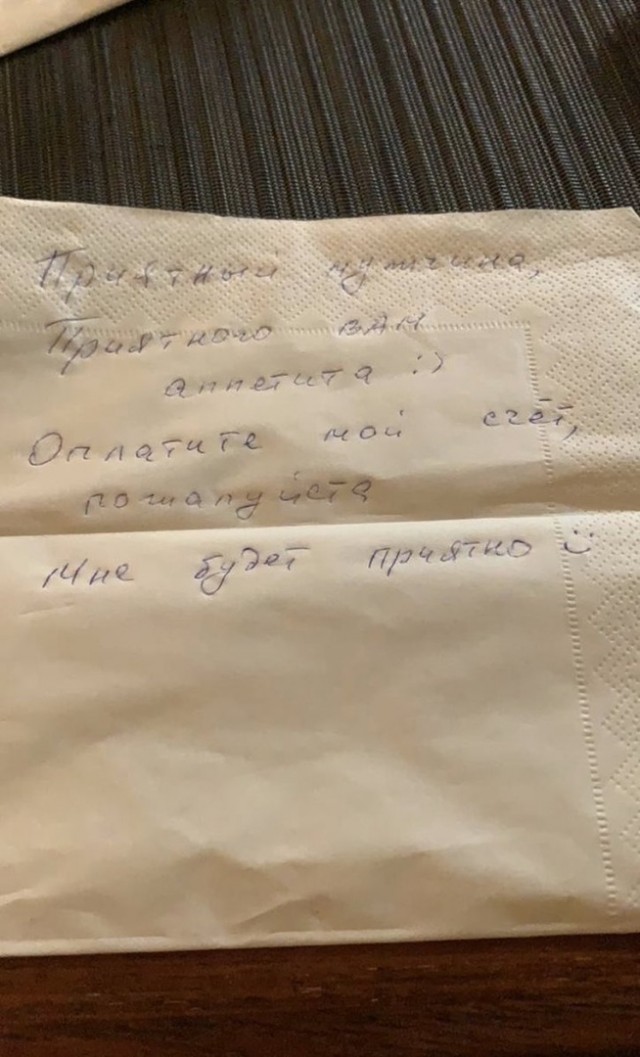 Приятный мужчина,
Приятного вам
аппетита :)
Оплатите мой счёт,
пожалуйста
Мне будет приятно :)